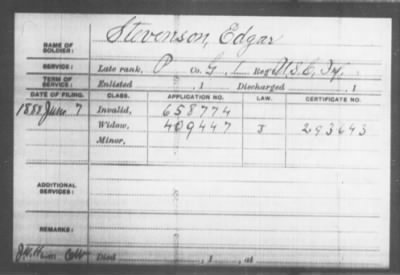 Stevenson, Edgar
NAME OF SOLDIER:
SERVICE: Late rank, P Co. G, 1 Reg't U.S.C. Inf.
TERM OF SERVICE: Enlisted , 1 Discharged , 1
DATE OF FILING. CLASS. APPLICATION NO. LAW. CERTIFICATE NO.
1888 June 7 Invalid, 658774
Widow, 409447 J 293643
Minor,
ADDITIONAL SERVICES:
REMARKS:
Died , 1 , at